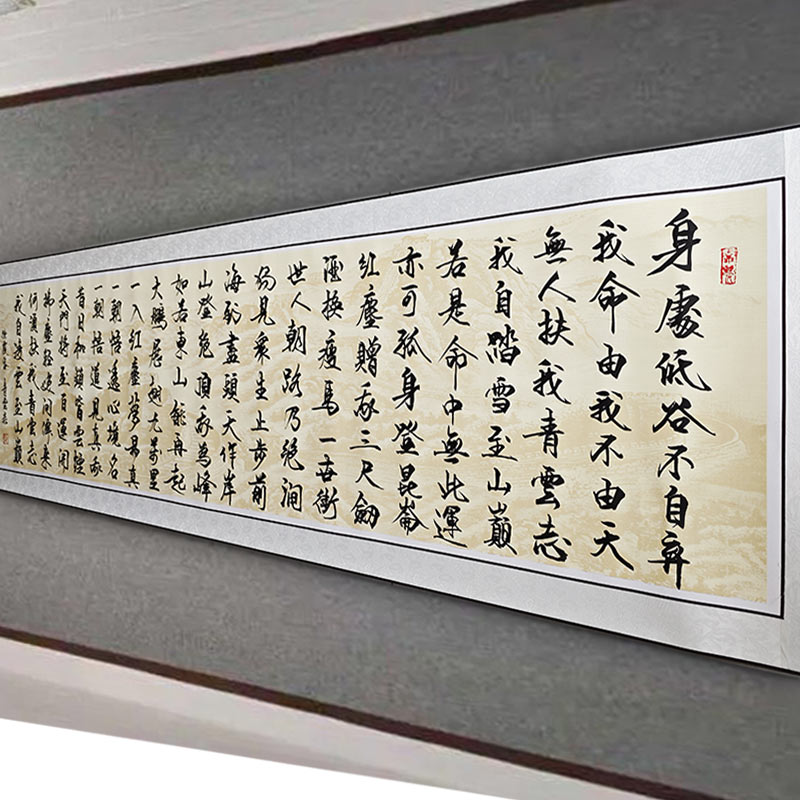 身處低谷不自弃
我命由我不由天
無人扶我青雲志
我自踏雪至山巔
若是命中無此運
亦可孤身登昆崙
紅塵贈我三尺劍
酒換瘦馬一世衝
世人朝路乃絕澗
獨見眾生止步前
海到盡頭天作岸
山登絕頂我為峰
如若東山能再起
大鵬展翅九萬里
一入紅塵夢易真
一朝悟透心境名
一朝悟道見真我
昔日枷鎖皆雲煙
天門將至百運開
拂塵輕
何須扶我青雲志
我自凌雲至山巔